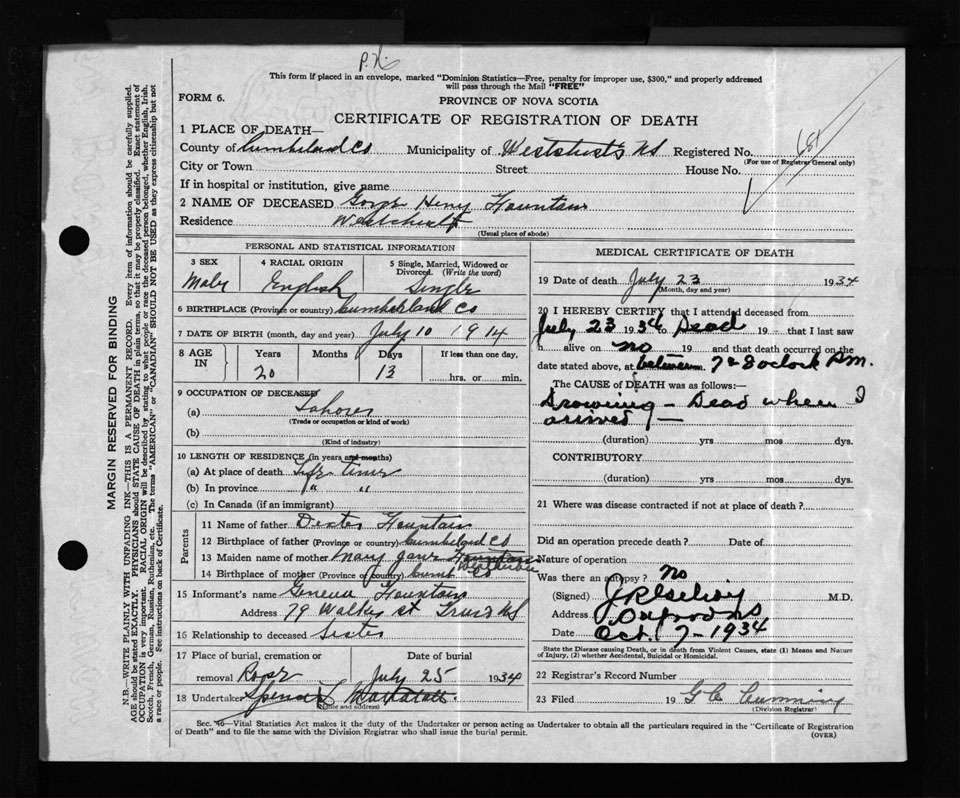 This form if placed in an envelope, marked "Dominion Statistics—Free, penalty for improper use, $300," and properly addressed
will pass through the Mail "FREE"
FORM 6.
PROVINCE OF NOVA SCOTIA
CERTIFICATE OF REGISTRATION OF DEATH
1 PLACE OF DEATH—
County of Cumberland Co Municipality of Registered No. 681
(For use of Registrar General only)
City or Town Street House No.
If in hospital or institution, give name
2 NAME OF DECEASED Henry Fountain
Residence
(Usual place of abode)
PERSONAL AND STATISTICAL INFORMATION
3 SEX 4 RACIAL ORIGIN 5 Single, Married, Widowed or
Divorced. (Write the word)
Male English Single
6 BIRTHPLACE (Province or country) Cumberland Co
7 DATE OF BIRTH (month, day and year) July 10 1914
8 AGE IN Years Months Days If less than one day,
20 13 hrs. or min.
9 OCCUPATION OF DECEASED
(a)
(Trade or occupation or kind of work)
(b)
(Kind of industry)
10 LENGTH OF RESIDENCE (in years and months)
(a) At place of death Life time
(b) In province " "
(c) In Canada (if an immigrant)
Parents
11 Name of father Dexter Fountain
12 Birthplace of father (Province or country) Cumberland Co
13 Maiden name of mother Mary Jane Fountain
14 Birthplace of mother (Province or country) Cumb Co
15 Informant's name Geneva Fountain
Address 79 Walker st Truro NS
16 Relationship to deceased Sister
17 Place of burial, cremation or Date of burial
removal July 25 1934
18 Undertaker
(Name and address)
MEDICAL CERTIFICATE OF DEATH
19 Date of death July 23 1934
(Month, day and year)
20 I HEREBY CERTIFY that I attended deceased from
July 23 1934 to Dead 19 that I last saw
h alive on no 19 and that death occurred on the
date stated above, at between 7 & 8 oclock P.M.
The CAUSE of DEATH was as follows:—
Drowning — Dead when I
arrived —
(duration) yrs mos dys.
CONTRIBUTORY
(duration) yrs mos dys.
21 Where was disease contracted if not at place of death?
Did an operation precede death? Date of
Nature of operation
Was there an autopsy? no
(Signed) M.D.
Address Oxford NS
Date Oct. 7-1934
State the Disease causing Death, or in death from Violent Causes, state (1) Means and Nature
of Injury, (2) whether Accidental, Suicidal or Homicidal.
22 Registrar's Record Number
23 Filed 19
(Division Registrar)
Sec. 46—Vital Statistics Act makes it the duty of the Undertaker or person acting as Undertaker to obtain all the particulars required in the "Certificate of Registration
of Death" and to file the same with the Division Registrar who shall issue the burial permit.
(OVER)
MARGIN RESERVED FOR BINDING
N.B.—WRITE PLAINLY WITH UNFADING INK—THIS IS A PERMANENT RECORD. Every item of information should be carefully supplied.
AGE should be stated EXACTLY. PHYSICIANS should STATE CAUSE OF DEATH in plain terms, so that it may be properly classified. Exact statement of
OCCUPATION is very important. RACIAL ORIGIN will be described by stating to what people or race the deceased person belonged, whether English, Irish,
Scotch, French, German, Russian, Ruthenian, etc. The terms "AMERICAN" or "CANADIAN" SHOULD NOT BE USED as they express citizenship but not
a race or people. See instructions on back of Certificate.